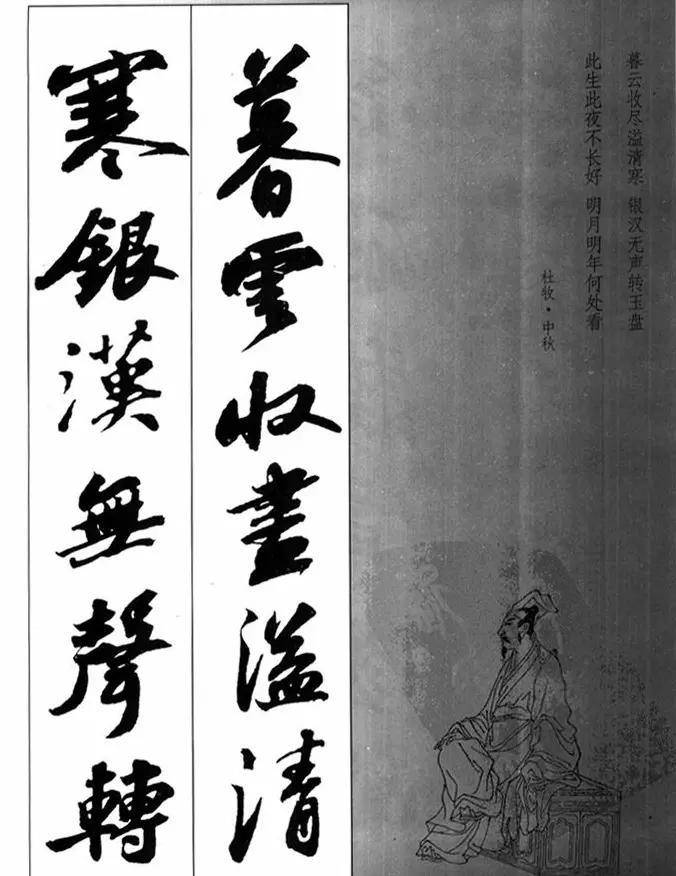 暮云收尽溢清寒 银汉无声转玉盘
此生此夜不长好 明月明年何处看
杜牧·中秋
暮雲收盡溢清
寒銀漢無聲轉